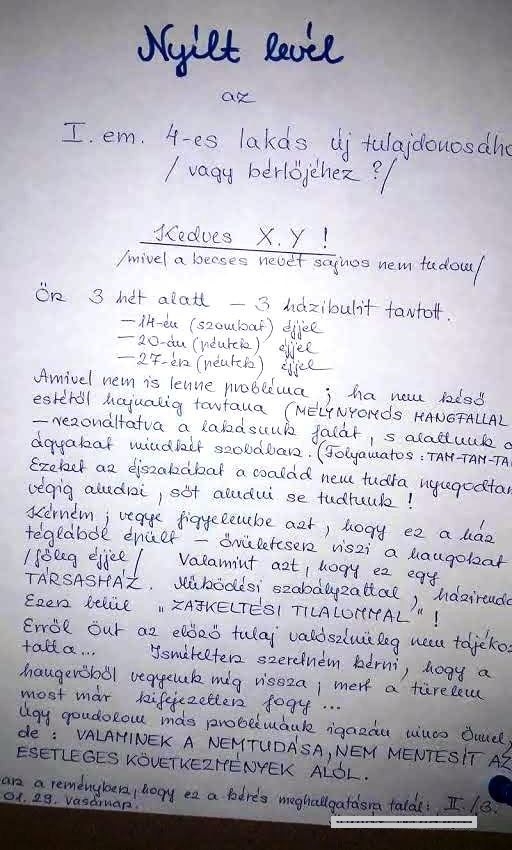 Nyílt levél
az
I. em. 4-es lakás új tulajdonosáho
/ vagy bérlőjéhez ?/
Kedves X.Y !
/mivel a becses nevét sajnos nem tudom/
Ön 3 hét alatt – 3 házibulit tartott.
– 14-én (szombat) éjjel
– 20-án (péntek) éjjel
– 27-én (péntek) éjjel
Amivel nem is lenne probléma ; ha nem késő
estétől hajnalig tartana (MÉLYNYOMÓS HANGFALLAL
– rezonáltatva a lakásunk falát, s alattunk a
ágyakat mindkét szobában. (Folyamatos : TAM-TAM-TA
Ezeket az éjszakákat a család nem tudta nyugodtan
végig aludni, sőt aludni se tudtunk !
Kérném ; vegye figyelembe azt, hogy ez a ház
téglából épült – őrületesen viszi a hangokat
/főleg éjjel/ Valamint azt, hogy ez egy
TÁRSASHÁZ. Működési szabályzattal, házirend
Ezen belül „ZAJKELTÉSI TILALOMMAL" !
Erről önt az előző tulaj valószínűleg nem tájékoz
tatta... Ismételten szeretném kérni, hogy a
hangerőből vegyenek még vissza ; mert a türelem
most már kifejezetten fogy ...
Úgy gondolom más problémánk igazán nincs Önnel,
de : VALAMINEK A NEMTUDÁSA, NEM MENTESÍT AZ
ESETLEGES KÖVETKEZMÉNYEK ALÓL.
an a reményben, hogy ez a kérés meghallgatásra talál : II./3.
01.29. vasárnap.